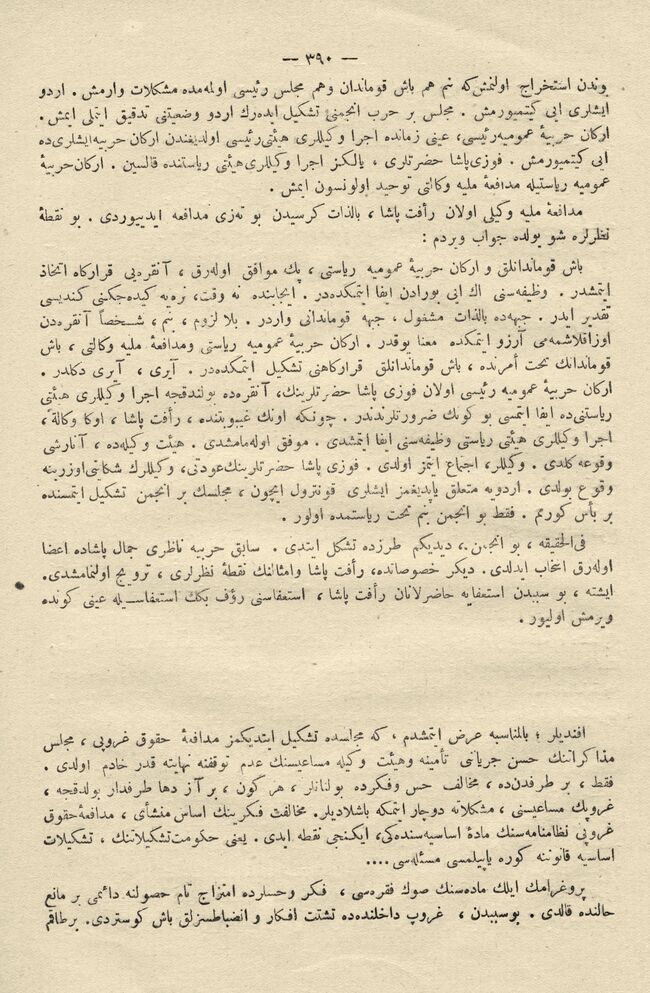 — ٣٩٠ —
وندن استخراج اولنمش‌كه بنم هم باش قوماندان وهم مجلس رئیسی اولمه‌مده مشكلات وارمش . اردو
ایشلری ایی كیتمیورمش . مجلس بر حرب انجمنی تشكیل ایده‌رك اردو وضعیتنی تدقیق ایتملی ایمش .
اركان حربیهٔ عمومیه‌رئیسی، عینی زمانده اجرا وكیللری هیئتی‌رئیسی اولدیغندن اركان حربیه‌ایشلری‌ده
ایی كیتمیورمش . فوزی‌پاشا حضرتلری ، یالكز اجرا وكیللری‌هیئتی ریاستنده قالسین . اركان‌حربیهٔ
عمومیه ریاستیله مدافعهٔ ملیه وكالتی توحید اولونسون ایمش .
مدافعهٔ ملیه وكیلی اولان رأفت پاشا ، بالذات كرسیدن بو تەزی مدافعه ایدییوردی . بو نقطهٔ
نظرلره شو یولده جواب ویردم :
باش قوماندانلق و اركان حربیهٔ عمومیه ریاستی ، پك موافق اوله‌رق ، آنقره‌یی قراركاه اتخاذ
ایتمشدر . وظیفه‌سنی اك ایی بورادن ایفا ایتمكده‌در . ایجابنده نه وقت، نره‌یه كیده‌جكنی كندیسی
تقدیر ایدر . جبهه‌ده بالذات مشغول ، جبهه قوماندانی واردر . بلا لزوم ، بنم ، شخصاً آنقره‌دن
اوزاقلاشمه‌می آرزو ایتمكده معنا یوقدر . اركان حربیهٔ عمومیه ریاستی ومدافعهٔ ملیه وكالتی ، باش
قوماندانك تحت امرنده ، باش قوماندانلق قراركاهنی تشكیل ایتمكده‌در . آیری ، آیری دكلدر .
اركان حربیهٔ عمومیه رئیسی اولان فوزی پاشا حضرتلرینك، آنقره‌ده بولندقجه اجرا وكیللری هیئتی
ریاستنی‌ده ایفا ایتمسی بو كونك ضرورتلرندندر . چونكه اونك غیبوبتنده ، رأفت پاشا ، اوكا وكالةً،
اجرا وكیللری هیئتی ریاستی وظیفه‌سنی ایفا ایتمشدی . موفق اوله‌مامشدی . هیئت وكیله‌ده ، آنارشی
وقوعه كلدی . وكیللر، اجتماع ایتمز اولدی . فوزی پاشا حضرتلرینك‌عودتی، وكیللرك شكایتی‌اوزرینه
وقوع بولدی . اردویه متعلق یاپدیغمز ایشلری قونترول ایچون ، مجلسك بر انجمن تشكیل ایتمسنده
بر بأس كورمم . فقط بو انجمن بنم تحت ریاستمده اولور .
فی‌الحقیقه ، بو انجمن ، دیدیكم طرزده تشكل ایتدی . سابق حربیه ناظری جمال پاشاده اعضا
اوله‌رق انتخاب ایدلدی . دیكر خصوصاتده، رأفت پاشا وامثالنك نقطهٔ نظرلری ، ترویج اولنمامشدی.
ایشته ، بو سببدن استعفایه حاضرلانان رأفت پاشا ، استعفاسنی رؤف بكك استعفاسیله عینی كونده
ویرمش اولیور .
افندیلر ؛ بالمناسبه عرض ایتمشدم ، كه مجلسده تشكیل ایتدیكمز مدافعهٔ حقوق غروپی ، مجلس
مذاكراتنك حسن جریاننی تأمینه وهیئت وكیله مساعیسنك عدم توقفنه نهایته قدر خادم اولدی .
فقط ، بر طرفدن‌ده ، مخالف حس وفكرده بولنانلر ، هر كون ، بر آز دها طرفدار بولدقجه ،
غروپك مساعیسنی ، مشكلاته دوچار ایتمكه باشلادیلر. مخالفت فكرینك اساس منشأی ، مدافعهٔ‌حقوق
غروپی نظامنامه‌سنك مادهٔ اساسیه‌سنده‌كی، ایكنجی نقطه ایدی . یعنی حكومت‌تشكیلاتنك ، تشكیلات
اساسیه قانوننه كوره یاپیلمسی مسئله‌سی ....
پروغرامك ایلك ماده‌سنك صوك فقره‌سی ، فكر وحسلرده امتزاج تام حصولنه دائمی بر مانع
حالنده قالدی . بوسببدن ، غروپ داخلنده‌ده تشتت افكار و انضباطسزلق باش كوستردی. برطاقم